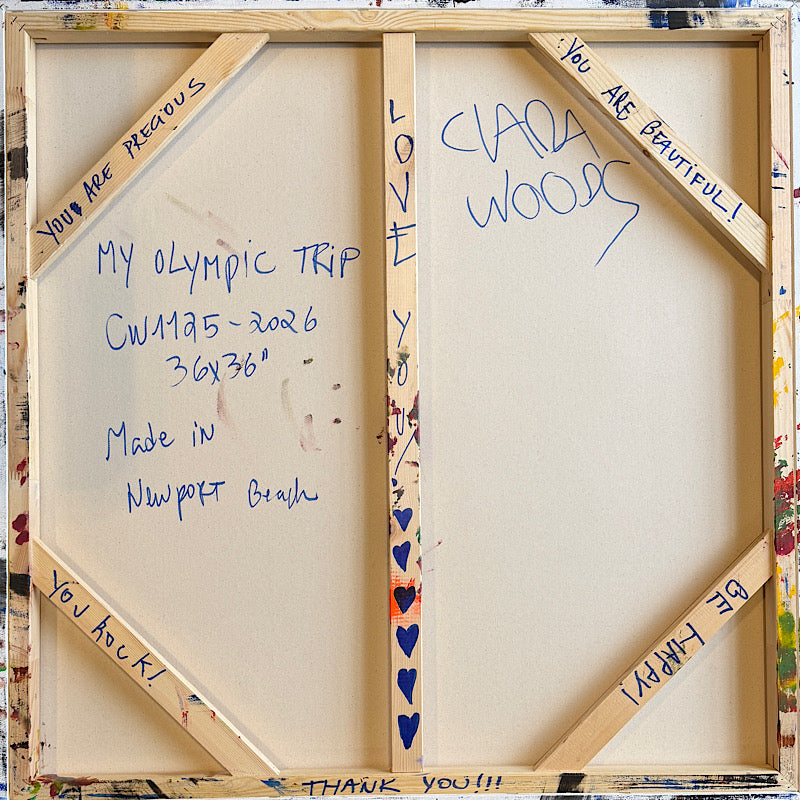 YOU ARE PRECIOUS
YOU ARE BEAUTIFUL!
LOVE YOU!
CLARA
WOODS
MY OLYMPIC TRIP
CW1125-2026
36x36"
Made in
Newport Beach
YOU ROCK!
BE HAPPY!
THANK YOU!!!